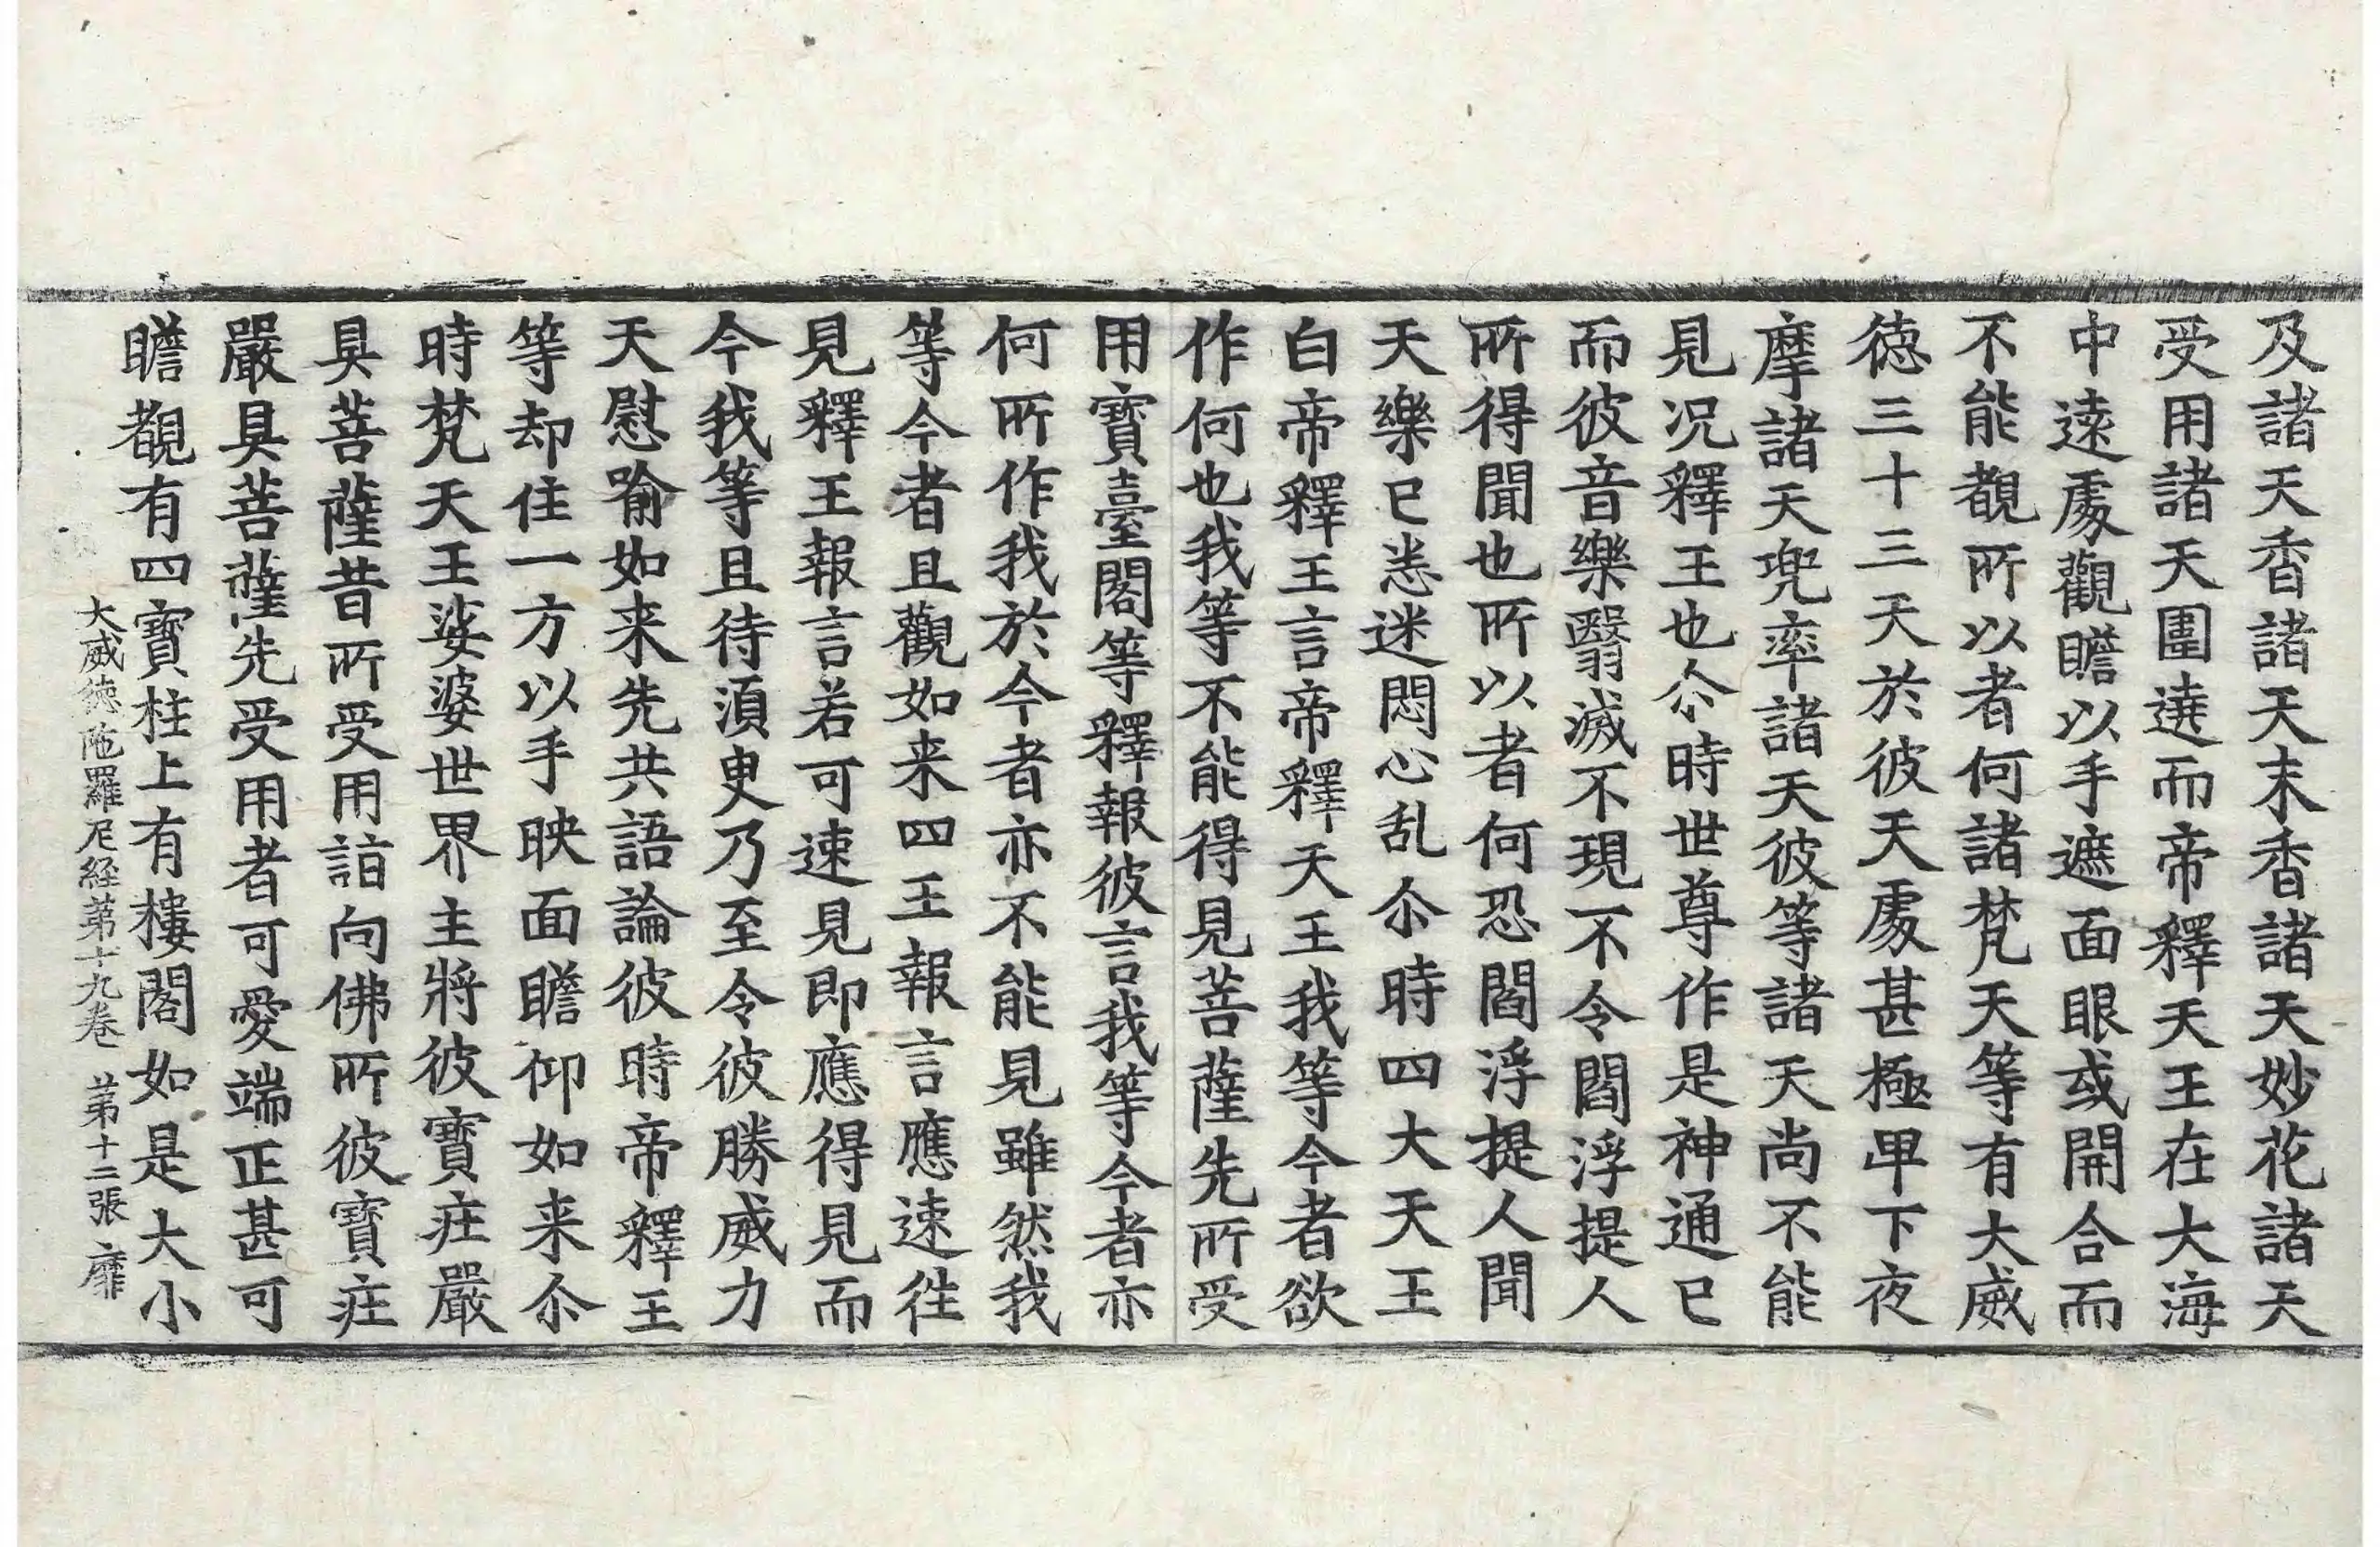 及諸天香諸天末香諸天妙花諸天
受用諸天圍遶而帝釋天王在大海
中遠處觀瞻以手遮面眼或開合而
不能覩所以者何諸梵天等有大威
德三十三天於彼天處甚極卑下夜
摩諸天兜率諸天彼等諸天尚不能
見况釋王也尒時世尊作是神通已
而彼音樂翳滅不現不令閻浮提人
所得聞也所以者何恐閻浮提人聞
天樂已悉迷悶心乱尒時四大天王
白帝釋王言帝釋天王我等今者欲
作何也我等不能得見菩薩先所受
用寶臺閣等釋報彼言我等今者亦
何所作我於今者亦不能見雖然我
等今者且觀如来四王報言應速往
見釋王報言若可速見即應得見而
今我等且待須臾乃至令彼勝威力
天慰喻如来先共語論彼時帝釋王
等却住一方以手映面瞻仰如来尒
時梵天王娑婆世界主將彼寶㽵嚴
具菩薩昔所受用詣向佛所彼寶㽵
嚴具菩薩先受用者可愛端正甚可
瞻覩有四寶柱上有樓閣如是大小
大威德陁羅尼経苐十九卷 苐十二張 靡